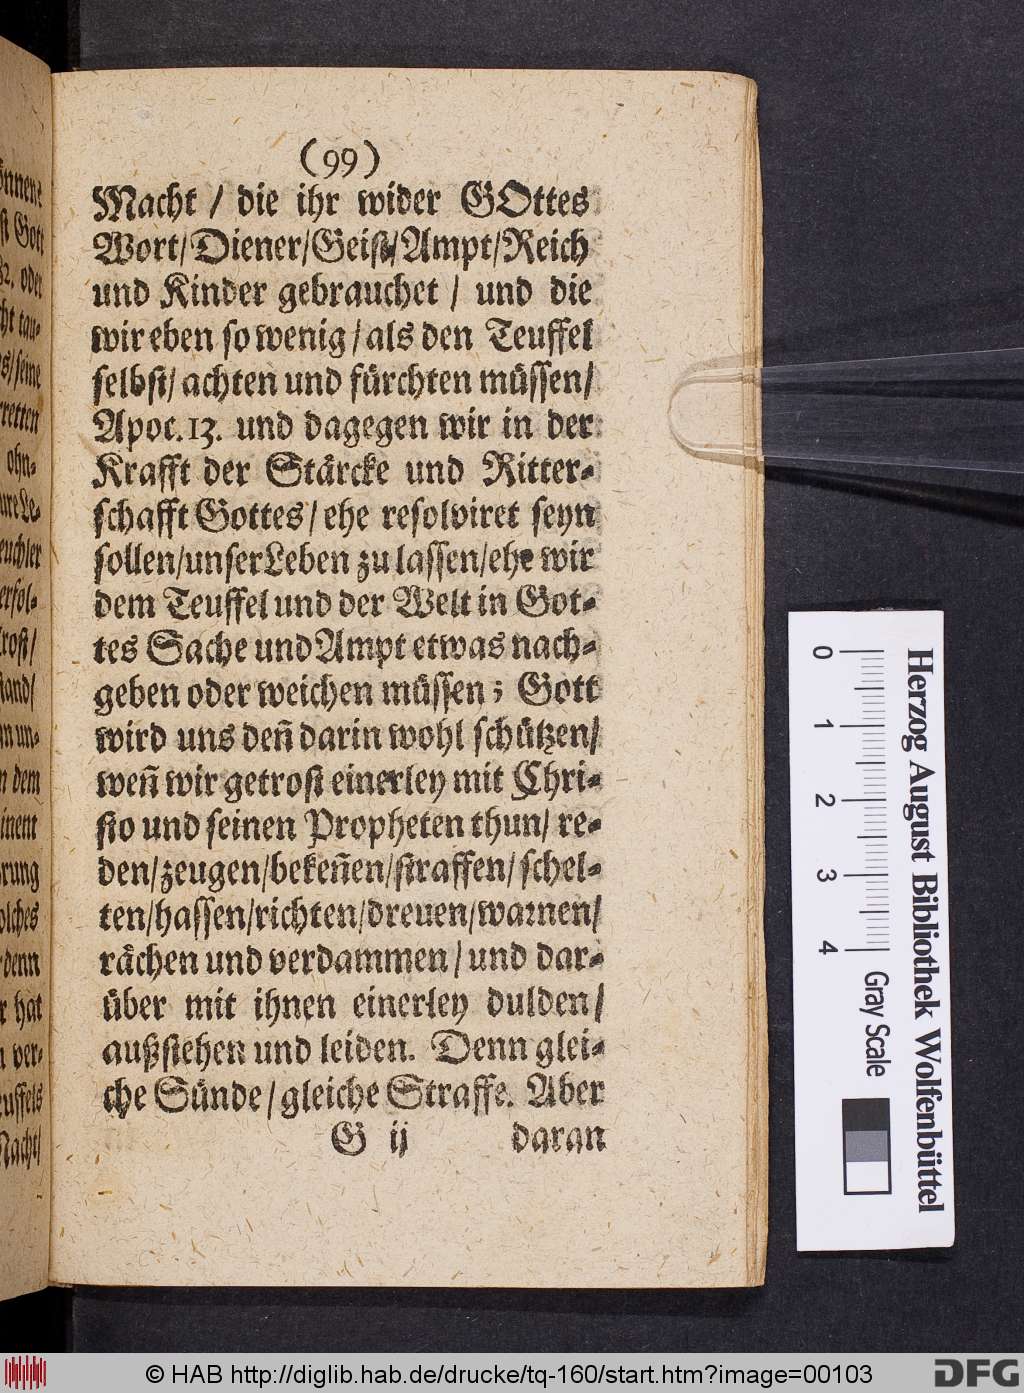 (99)
Macht / die ihr wider GOttes
Wort/ Diener/Geist/Ampt/Reich
und Kinder gebrauchet / und die
wir eben so wenig / als den Teuffel
selbst/ achten und fürchten müssen/
Apoc. 13. und dagegen wir in der
Krafft der Stärcke und Ritter-
schafft Gottes / ehe resolviret seyn
sollen/unser Leben zu lassen/ehe wir
dem Teuffel und der Welt in Got-
tes Sache und Ampt etwas nach-
geben oder weichen müssen; Gott
wird uns deñ darin wohl schützen/
weñ wir getrost einerley mit Chri-
sto und seinen Propheten thun/ re-
den/zeugen/bekeñen/straffen/ schel-
ten/hassen/richten/dreuen/warnen/
rächen und verdammen / und dar-
über mit ihnen einerley dulden/
außstehen und leiden. Denn glei-
che Sünde / gleiche Straffe. Aber
G ij daran
önnene
st Gott
82. oder
cht tau-
es/seine
rretten
ohn-
ure Le-
euchler
erfol-
rost/
stand/
nn un-
n dem
inent
hrung
olches
denn
r hat
n ver-
euffels
Macht/
0 1 2 3 4
Herzog August Bibliothek Wolfenbüttel
Gray Scale
© HAB http://diglib.hab.de/drucke/tq-160/start.htm?image=00103
DFG